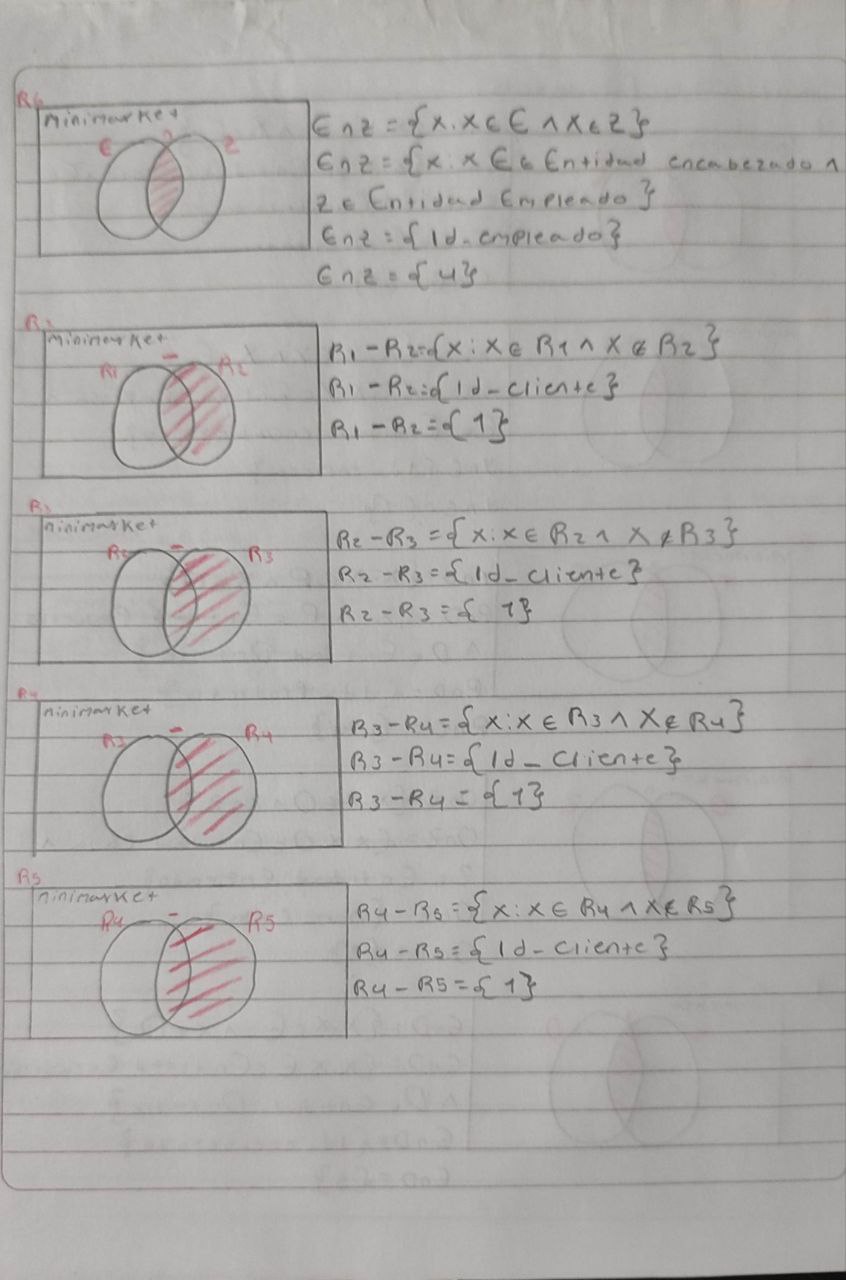 R6
minimarket
E
∩
Z
E∩Z = {X: X ∈ E ∧ X ∈ Z}
E∩Z = {X: X E ∈ Entidad encabezado ∧
Z ∈ Entidad Empleado}
E∩Z = {Id_empleado}
E∩Z = {4}
R2
minimarket
R1
-
R2
R1 - R2 = {X: X ∈ R1 ∧ X ∉ R2}
R1 - R2 = {Id_cliente}
R1 - R2 = {1}
R3
minimarket
R2
-
R3
R2 - R3 = {X: X ∈ R2 ∧ X ∉ R3}
R2 - R3 = {Id_cliente}
R2 - R3 = {1}
R4
minimarket
R3
-
R4
R3 - R4 = {X: X ∈ R3 ∧ X ∉ R4}
R3 - R4 = {Id_cliente}
R3 - R4 = {1}
R5
minimarket
R4
-
R5
R4 - R5 = {X: X ∈ R4 ∧ X ∉ R5}
R4 - R5 = {Id_cliente}
R4 - R5 = {1}